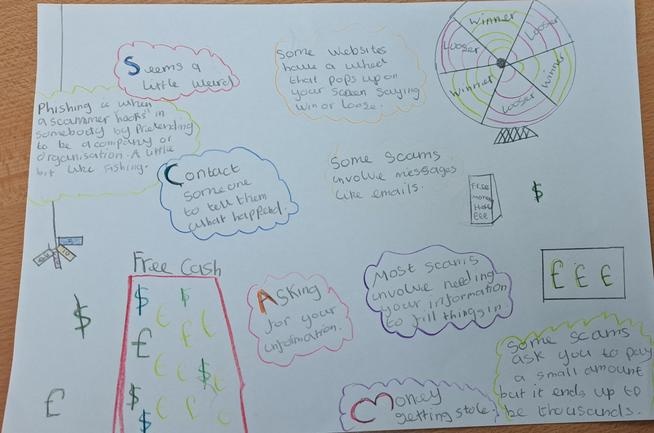 Seems a
little weird
Some websites
have a wheel
that pops up on
your screen saying
win or loose.
Winner
Looser
Winner
Looser
Winner
Looser
Phishing is when
a scammer hooks in
somebody by Pretending
to be a company or
organisation. A little
bit like Fishing.
Contact
someone
to tell them
what happend.
Some scams
involve messages
like emails.
FREE
money
Here
£££
$
Free Cash
$
£
$ $
£
$
$
£
£
Asking
for your
information.
Most scams
involve needing
your information
to fill things in
£ £ £
Money
getting stole.
Some scams
ask you to pay
a small amount
but it ends up to
be thousands.